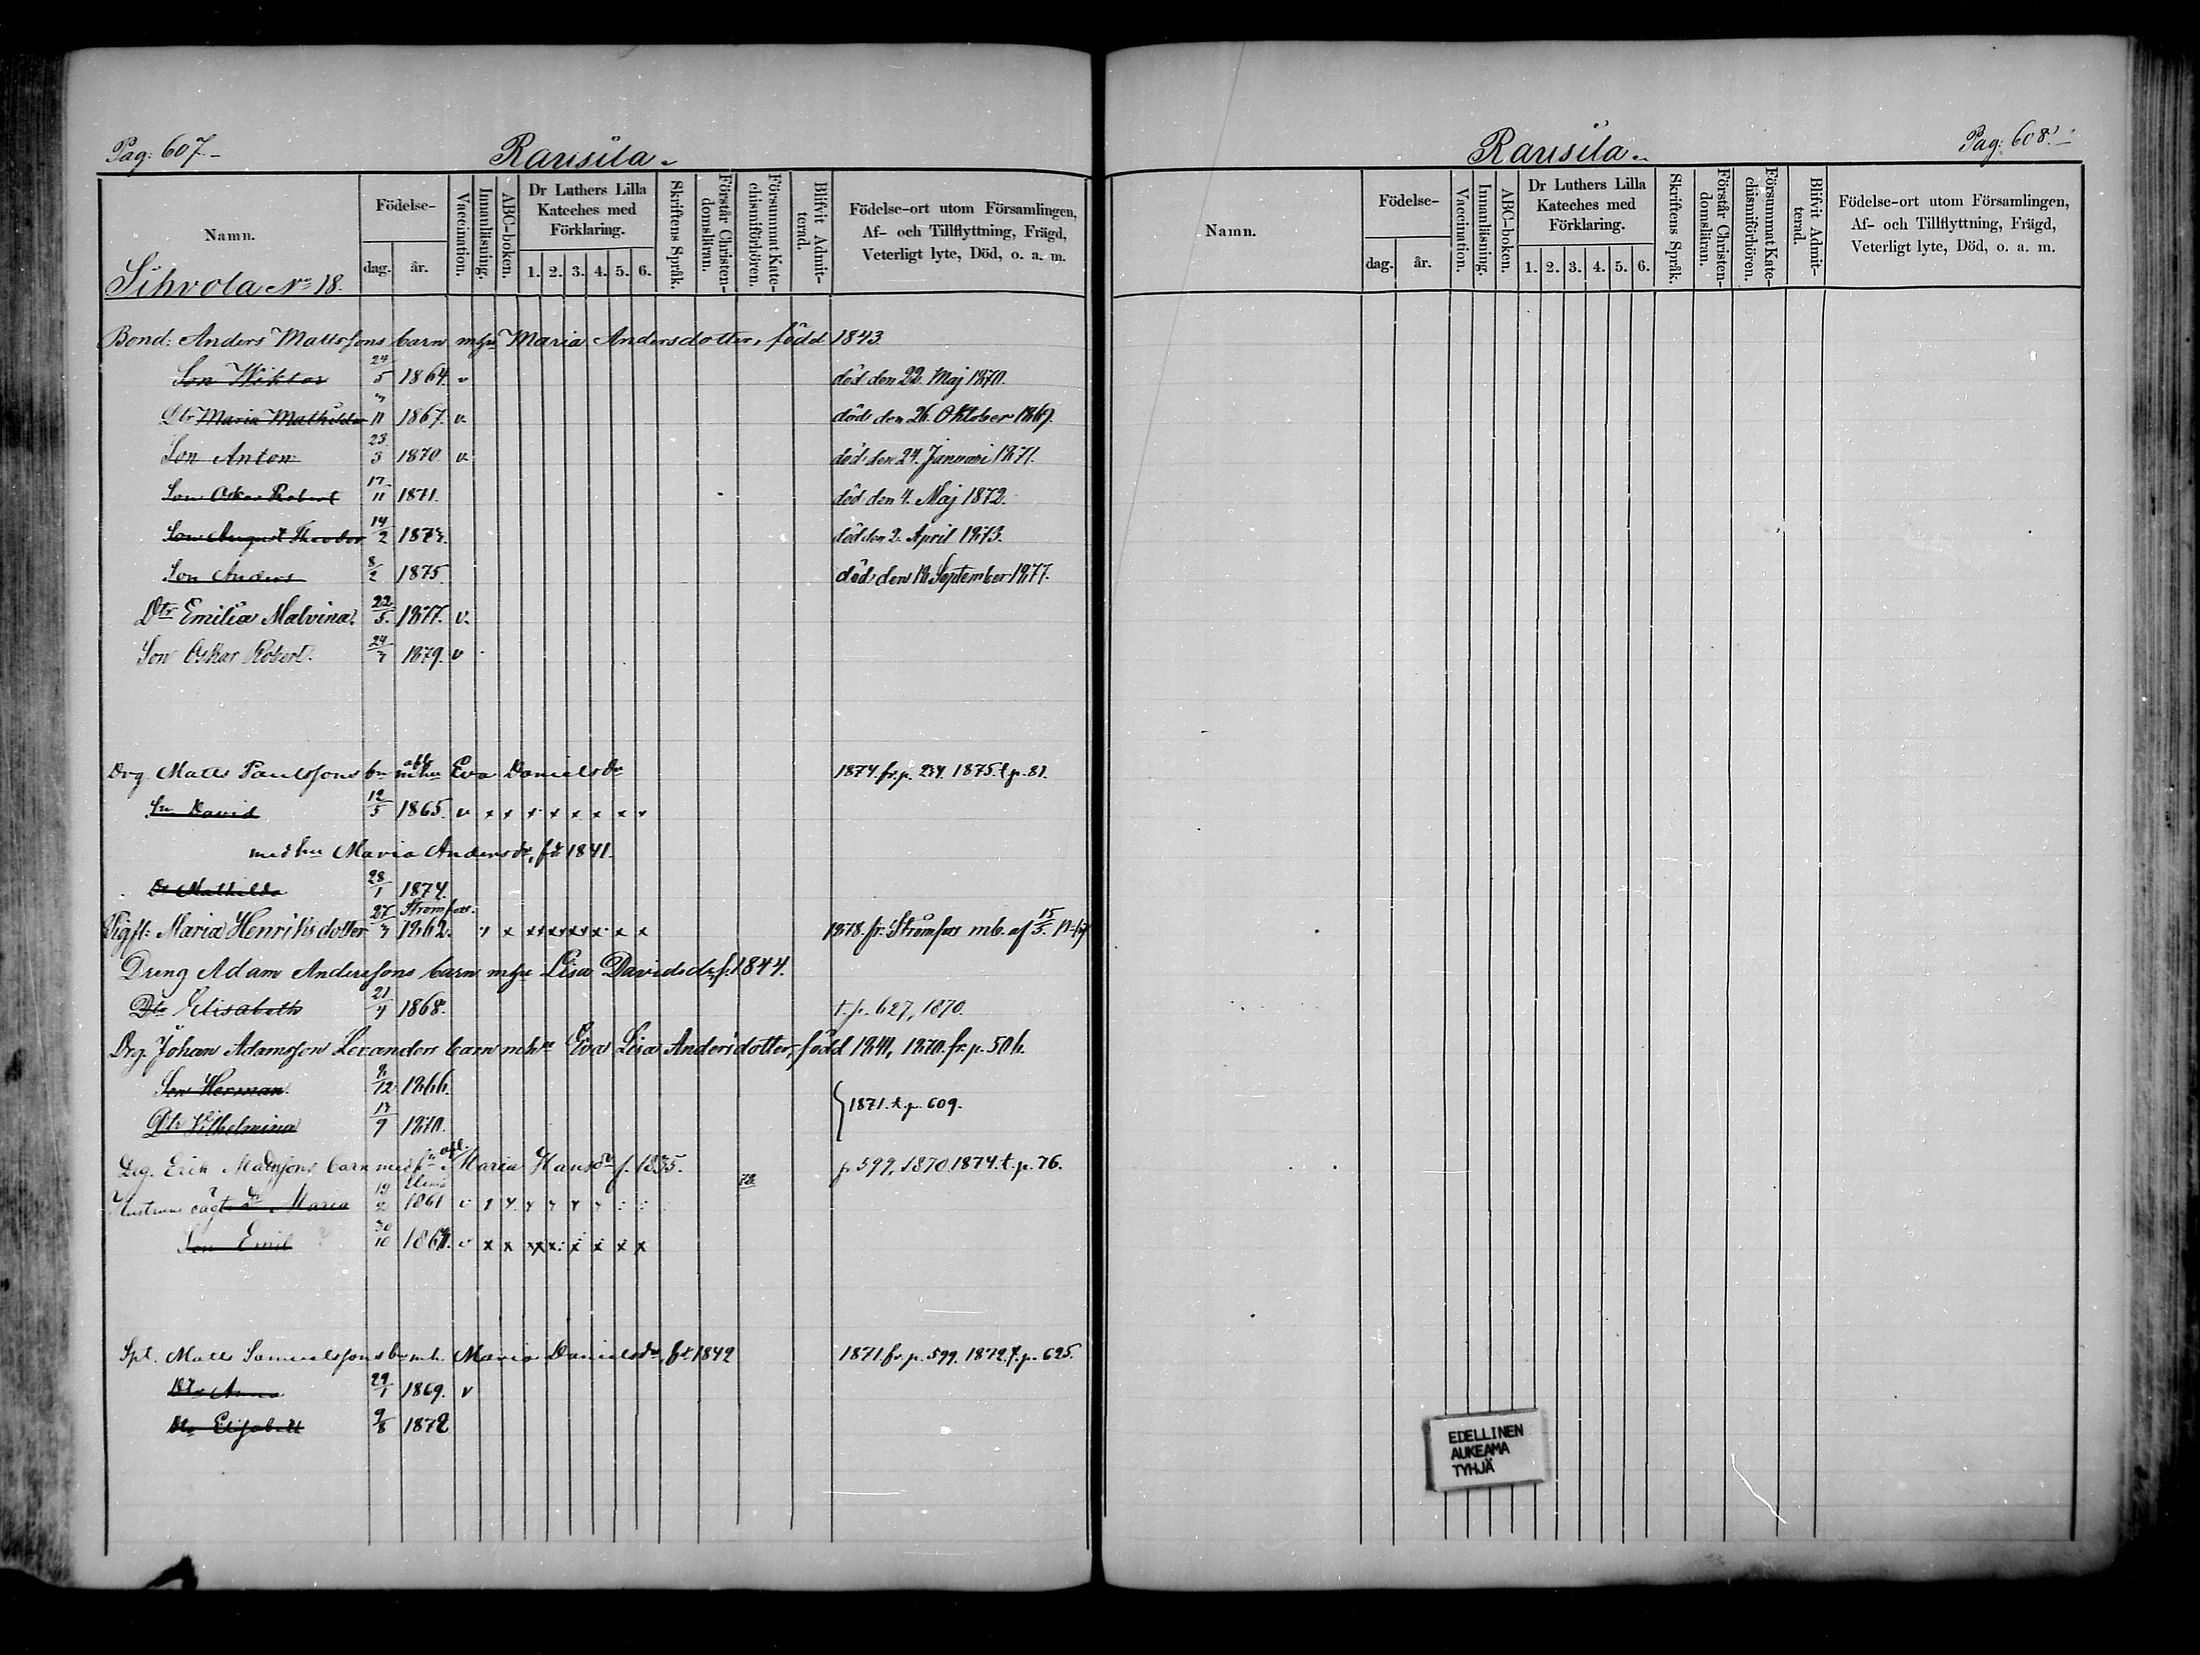 Pag: 607.
Rausila.
Namn.
Födelse-
dag.
år.
Vaccination.
Innanläsning.
ABC-boken.
Dr Luthers Lilla
Kateches med
Förklaring.
1. 2. 3. 4. 5. 6.
Skriftens Språk.
Förstår Christen-
domsläran.
Försummat Kate-
chismiförhören.
Blifvit Admit-
terad.
Födelse-ort utom Församlingen,
Af- och Tillflyttning, Frägd,
Veterligt lyte, Död, o. a. m.
Sihvola No 18.
Bond: Anders Mattssons barn mhu Maria Andersdotter, född 1843.
Son Wiktor 24/5 1864. v död den 22. Maj 1870.
Dtr Maria Mathilda 11 1867. v. död den 26. Oktober 1869.
Son Anton 23/3 1870 v. död den 24. Januari 1871.
Son Oskar Robert 17/11 1871. död den 4. Maj 1872.
Son August Theodor 14/2 1873. död den 2. April 1873.
Son Anders 8/2 1875. död den 18 September 1877.
Dtr Emilia Malvina. 22/5. 1877. v.
Son Oskar Robert. 24/3 1879. v
Drg. Matts Paulssons bn m afl. hu Eva Danielsdr 1874. fr. p. 234. 1875. t. p. 81.
Sn David 12/5 1865. v x x x x x x x x
med hu Maria Andersdr, fd 1841.
Dr Mathilda 28/1 1874.
Strömfors.
Pigfl: Maria Henriksdotter 27/3 1862. x x x x x x x x 1878. fr. Strömfors mb. af 15/5.
Dreng Adam Anderssons barn mhu Lisa Davidsdr, f. 1844.
Dtr Elisabeth 21/4 1868. t. p. 627, 1870.
Drg. Johan Adamsson Levanders barn mhu Eva Lisa Andersdotter, född 1841, 1870. fr. p. 506.
Son Herman. 8/12 1866.
} 1871. t. p. 609.
Dtr Vilhelmina 17/9 1870.
Drg. Erik Mattssons barn med hu afl. Maria Hansdr f. 1835. p 599, 1870 1874. t. p. 76.
Hustruns oägta Dr Maria 19/2 1861 v
Son Emil 30/10 1867. v x x x x x x x x
Spt. Matts Samuelssons bn m.h. Maria Danielsdr, fd 1842 1871 fr. p. 599. 1872. t. p. 625.
Dtr Anna 29/1 1869. v
Dtr Elisabeth 9/8 1872
Rausila.
Pag: 608.
Namn.
Födelse-
dag.
år.
Vaccination.
Innanläsning.
ABC-boken.
Dr Luthers Lilla
Kateches med
Förklaring.
1. 2. 3. 4. 5. 6.
Skriftens Språk.
Förstår Christen-
domsläran.
Försummat Kate-
chismiförhören.
Blifvit Admit-
terad.
Födelse-ort utom Församlingen,
Af- och Tillflyttning, Frägd,
Veterligt lyte, Död, o. a. m.
EDELLINEN
AUKEAMA
TYHJÄ